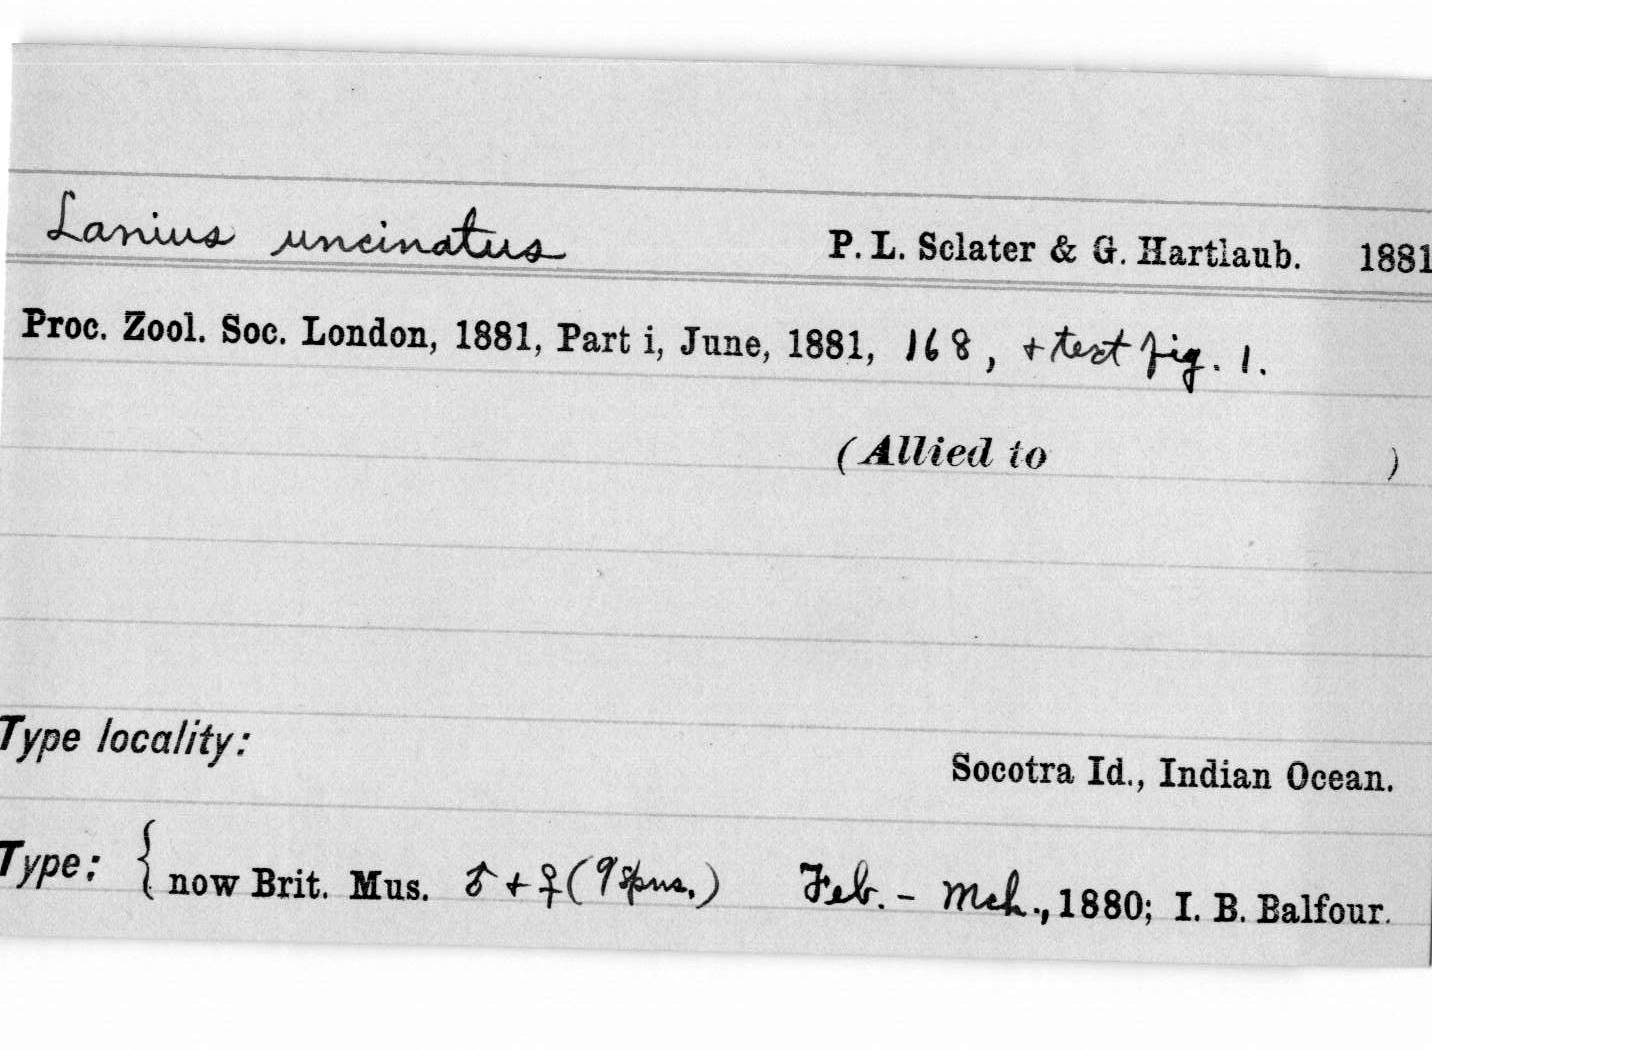 Lanius uncinatus P. L. Sclater & G. Hartlaub. 1881
Proc. Zool. Soc. London, 1881, Part i, June, 1881, 168, + text fig. 1.
(Allied to )
Type locality:
Socotra Id., Indian Ocean.
Type: { now Brit. Mus. ♂ + ♀ (9 spms.) Feb. - Mch., 1880; I. B. Balfour.